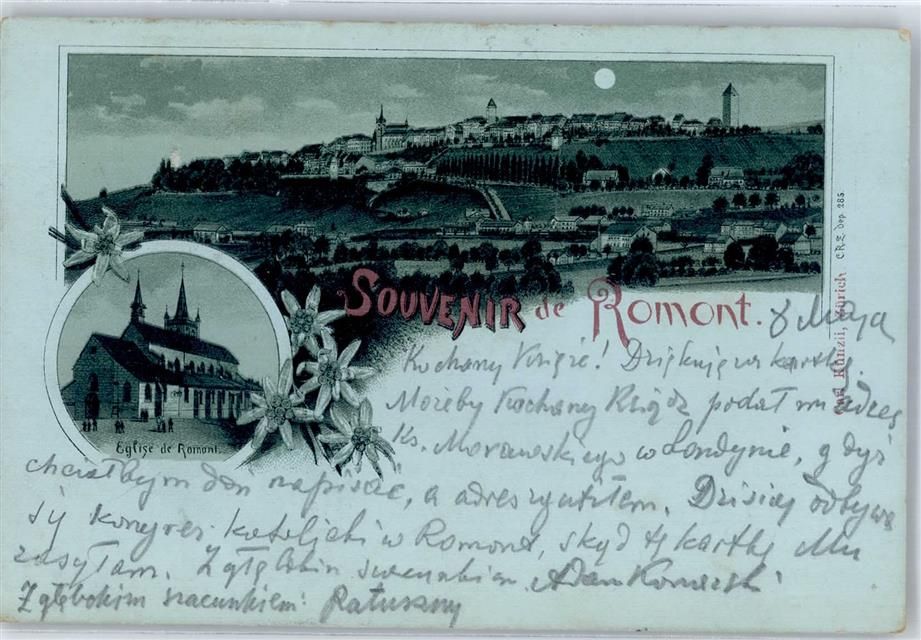 Souvenir de Romont.
Eglise de Romont.
Carl Künzli, Zürich. C.K.Z. dep. 285.
8 Maja
Kochany Księże! Dziękuję za kartkę.
Możeby Kochany Ksiądz podał mi adres
Ks. Morawskiego w Londynie, gdyż
chciałbym doń napisać, a adres zgubiłem. Dzisiaj odbywa
się kongres katolicki w Romont, skąd tę kartkę Mu
zasyłam. Z głębokim szacunkiem Adam
Z głębokim szacunkiem: Ratuszny